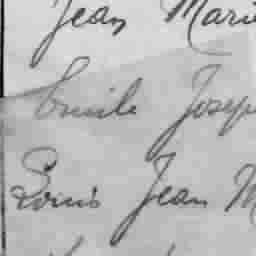 Jean Marie
Emile Joseph
Louis Jean M